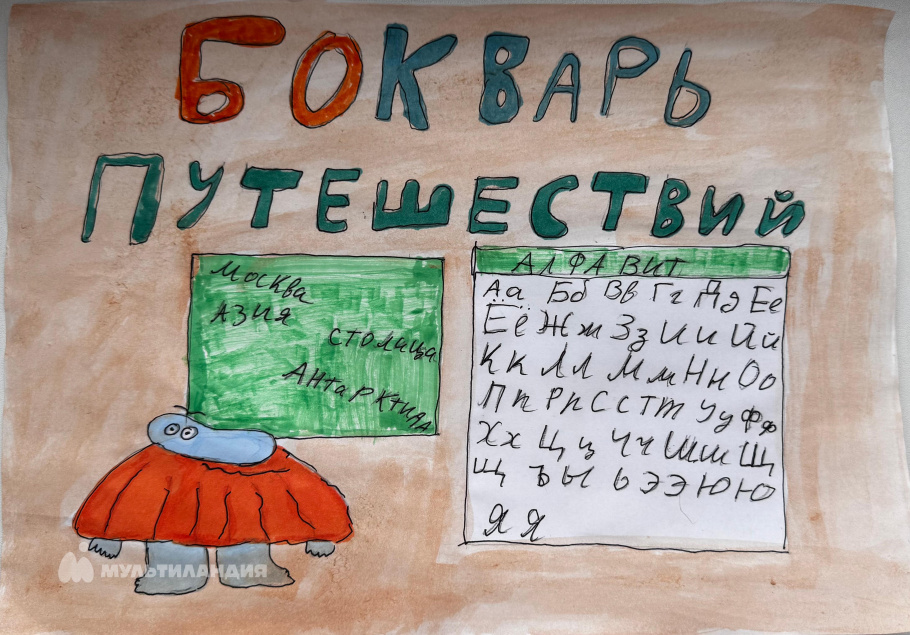 БОКВАРЬ
ПУТЕШЕСТВИЙ
Москва
АЗИЯ
СТОЛИЦА
АНТАРКТИДА
АЛФАВИТ
Аа Бб Вв Гг Дд Ее
Ёё Жж Зз Ии Йй
Кк Лл Мм Нн Оо
Пп Рр Сс Тт Уу Фф
Хх Цц Чч Шш Щ
щ ъ ы ь Ээ Юю
Яя
МУЛЬТИЛАНДИЯ